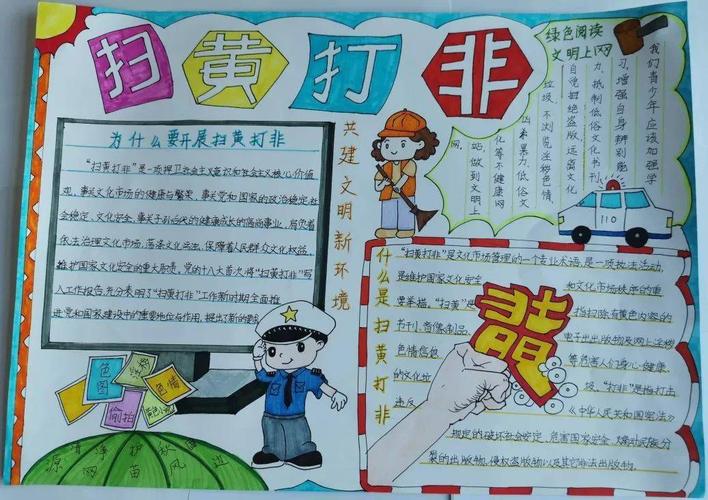 扫黄打非
为什么要开展扫黄打非
“扫黄打非”是一项捍卫社会主义
观,事关文化市场的健康与繁荣,事关党和国家的政治稳定、社
会稳定、文化安全,事关子孙后代的健康成长的高尚事业,肩负着
依法治理文化市场,荡涤文化
维护国家文化安全的重大
入工作报告,充分表明了“扫黄打非”工作新时期全面推
进党和国家建设中的重要地位与作用,提出了新的要求
共建文明新环境
绿色阅读
文明上网
我们青少年应该加强学
习,增强自身辨别能
力,抵制低俗文化书刊、
自觉拒绝盗版,远离文化
垃圾,不浏览淫秽色情、
凶杀暴力、低俗文
化等不健康网
站,做到文明上
网。
110
什么是扫黄打非
“扫黄打非”是文化市场管理的一个专业术语,是一项执法活动,
是维护国家文化安全 和文化市场秩序的重
要举措。“扫黄”是 指扫除有黄色内容的
书刊、音像制品、 电子出版物及网上淫秽
色情信息 等危害人们身心健康、
的文化垃圾。“打非”是指打击
违反 《中华人民共和国宪法》
规定的破坏社会安定、危害国家安全、煽动民族分
裂的出版物、侵权盗版物以及其它非法出版物。
色图
淫秽
色情
偷拍
清源 净网 护苗 秋风 固边